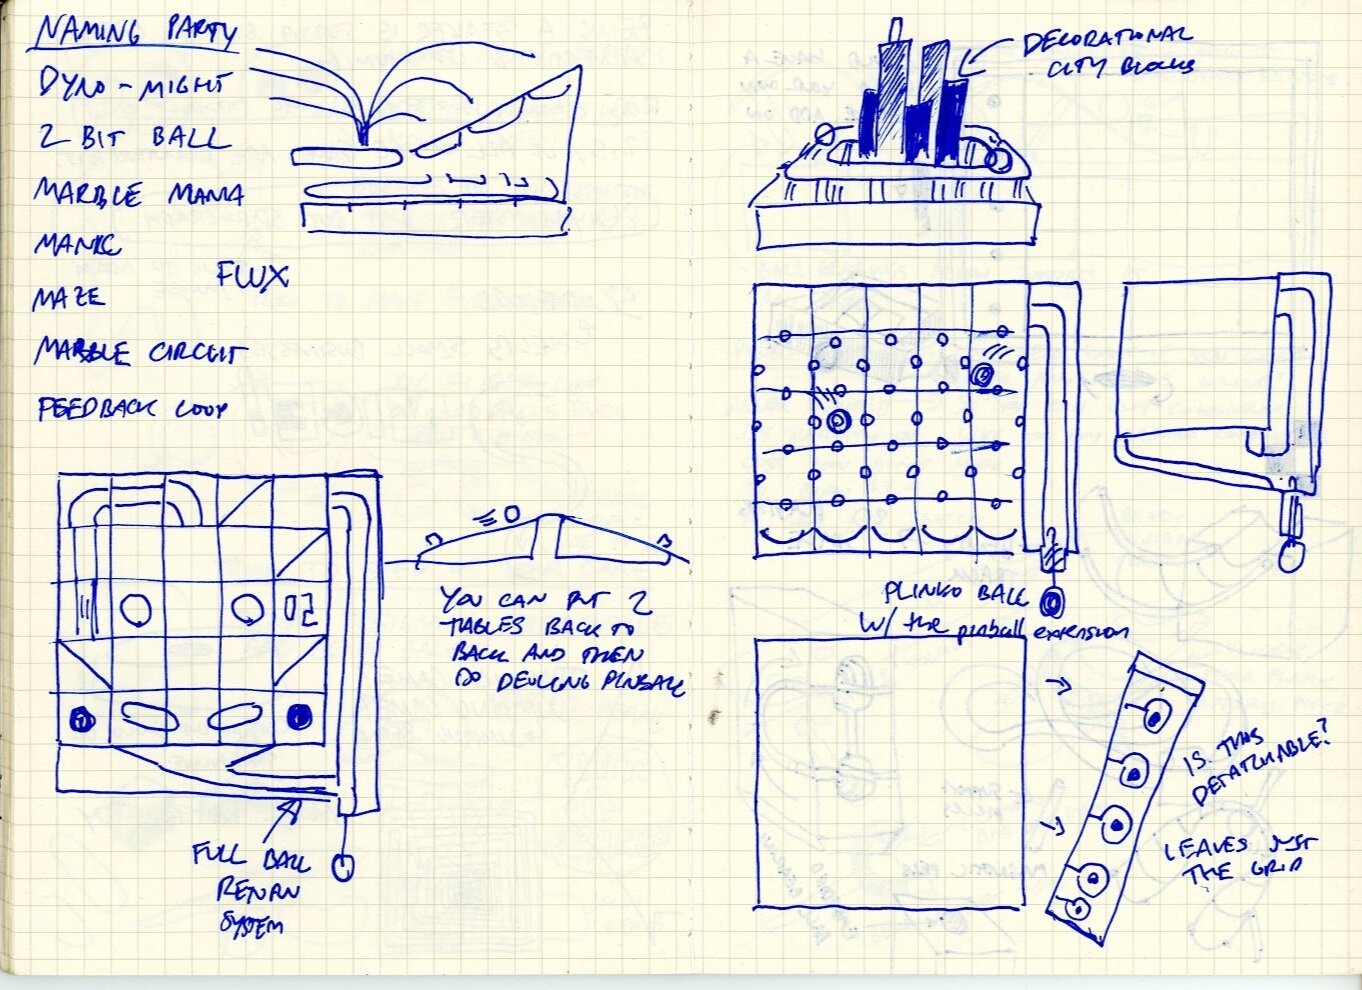 NAMING PARTY
DYNO-MIGHT
2 BIT BALL
MARBLE MANIA
MANIC
FLUX
MAZE
MARBLE CIRCUIT
FEEDBACK LOOP
YOU CAN PUT 2
TABLES BACK TO
BACK AND THEN
DO PINBALL
FULL BALL
SYSTEM
DECORATIONAL
CITY BLOCKS
PLINKO BALL
W/ the pinball extension
IS THIS
DETATCHABLE?
LEAVES JUST
THE GRID